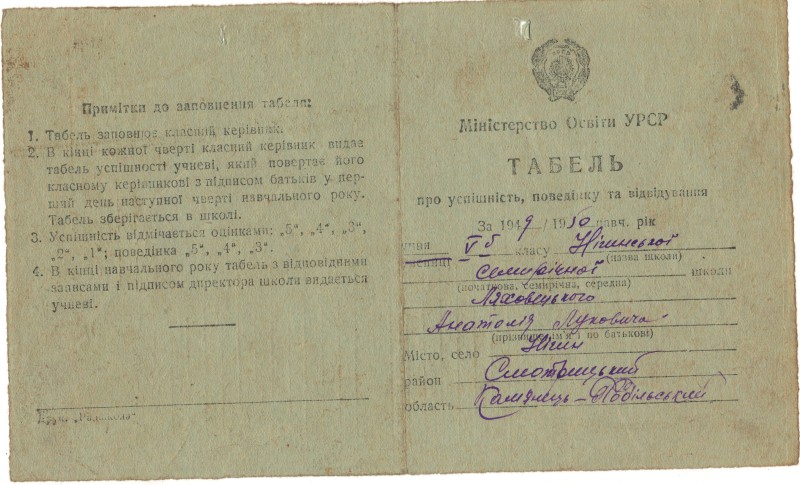 Примітки до заповнення табеля:
1. Табель заповнює класний керівник.
2. В кінці кожної чверті класний керівник видає
табель успішності учневі, який повертає його
класному керівникові з підписом батьків у пер-
ший день наступної чверті навчального року.
Табель зберігається в школі.
3. Успішність відмічається оцінками: „5“, „4“, „3“,
„2“, „1“; поведінка „5“, „4“, „3“.
4. В кінці навчального року табель з відповідними
записами і підписом директора школи видається
учневі.
Міністерство Освіти УРСР
ТАБЕЛЬ
про успішність, поведінку та відвідування
За 1949 / 1950 навч. рік
учня V б класу Нігинської
учениці (назва школи)
семирічної школи
(початкова, семирічна, середня)
Ляховецького
Анатолія Луковича
(прізвище, ім'я і по батькові)
Місто, село Нігин
район Смотрицький
область Камянець-Подільський